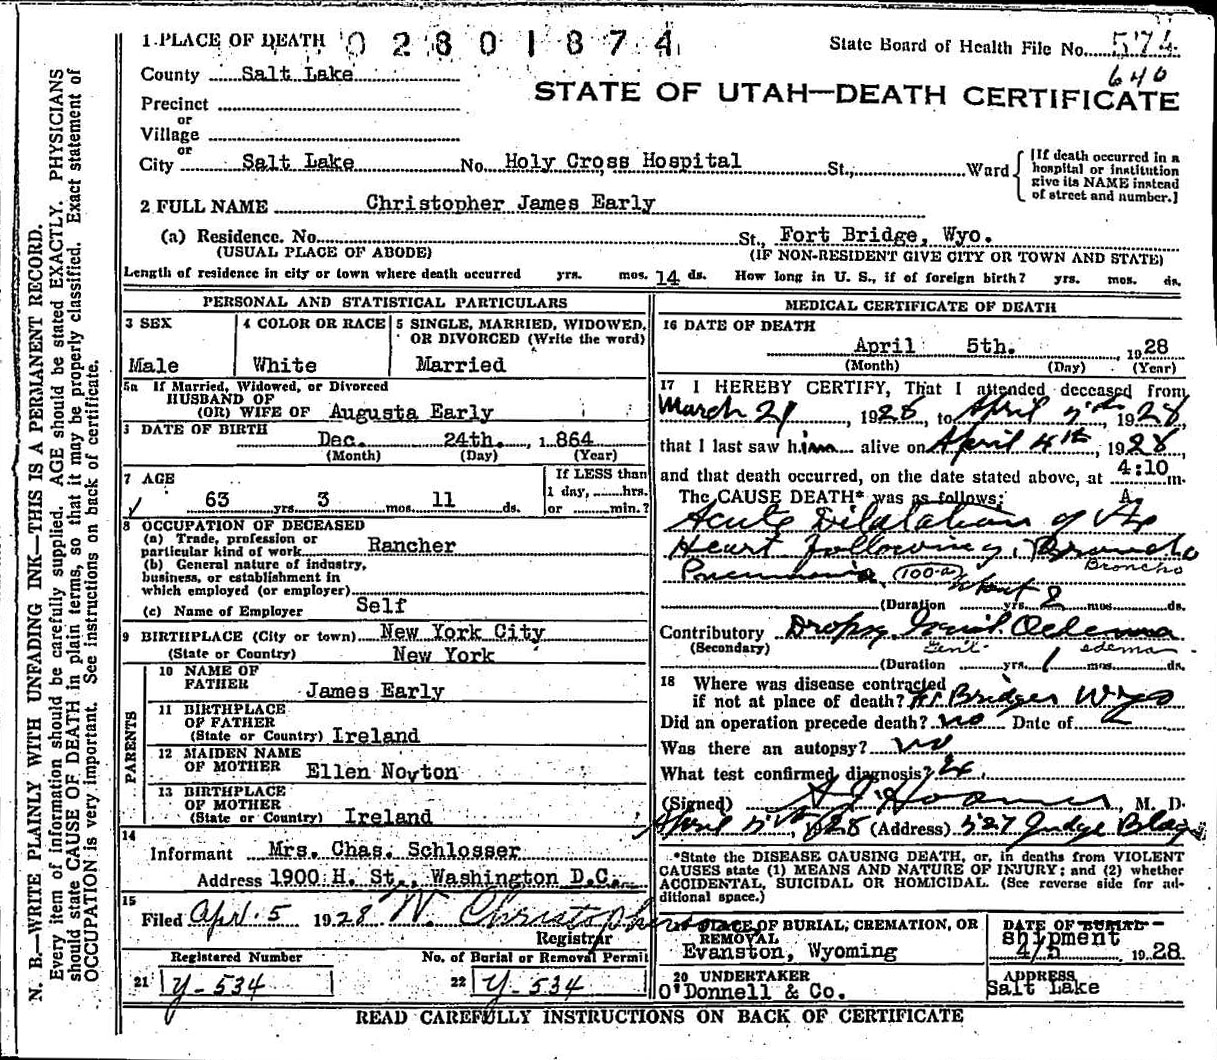 1 PLACE OF DEATH 02801874 State Board of Health File No. 574
County Salt Lake 640
STATE OF UTAH—DEATH CERTIFICATE
Precinct
or
Village
or
City Salt Lake No. Holy Cross Hospital St., Ward {[If death occurred in a hospital or institution give its NAME instead of street and number.]
2 FULL NAME Christopher James Early
(a) Residence. No. St., Fort Bridge, Wyo.
(USUAL PLACE OF ABODE) (IF NON-RESIDENT GIVE CITY OR TOWN AND STATE)
Length of residence in city or town where death occurred yrs. mos. 14 ds. How long in U. S., if of foreign birth? yrs. mos. ds.
PERSONAL AND STATISTICAL PARTICULARS
3 SEX 4 COLOR OR RACE 5 SINGLE, MARRIED, WIDOWED,
OR DIVORCED (Write the word)
Male White Married
5a If Married, Widowed, or Divorced
HUSBAND OF
(OR) WIFE OF Augusta Early
DATE OF BIRTH
Dec. 24th. 1864
(Month) (Day) (Year)
7 AGE If LESS than
63 yrs. 3 mos. 11 ds. 1 day, hrs.
or min.?
8 OCCUPATION OF DECEASED
(a) Trade, profession or
particular kind of work Rancher
(b) General nature of industry,
business, or establishment in
which employed (or employer)
(c) Name of Employer Self
9 BIRTHPLACE (City or town) New York City
(State or Country) New York
PARENTS
10 NAME OF
FATHER James Early
11 BIRTHPLACE
OF FATHER
(State or Country) Ireland
12 MAIDEN NAME
OF MOTHER Ellen Noyton
13 BIRTHPLACE
OF MOTHER
(State or Country) Ireland
14
Informant Mrs. Chas. Schlosser
Address 1900 H. St., Washington D.C.
15
Filed Apr. 5 1928 W. Christopherson
Registrar
Registered Number No. of Burial or Removal Permit
21 Y-534 22 Y-534
MEDICAL CERTIFICATE OF DEATH
16 DATE OF DEATH
April 5th. , 1928
(Month) (Day) (Year)
17 I HEREBY CERTIFY, That I attended deceased from
March 21, 1928, to April 5th, 1928
that I last saw him alive on April 4th, 1928,
and that death occurred, on the date stated above, at 4:10 m.
The CAUSE DEATH* was as follows: A
Acute Dilatation of the
Heart following Broncho
Pneumonia (100-a) Broncho
about 2
(Duration yrs. mos. ds.
Contributory Dropsy Oedema
(Secondary) edema
(Duration yrs. 1 mos. ds.
18 Where was disease contracted
if not at place of death? Ft Bridger Wyo
Did an operation precede death? no Date of
Was there an autopsy? no
What test confirmed diagnosis?
(Signed) , M. D.
April 5th, 1928 (Address) 527 Judge Bldg
*State the DISEASE CAUSING DEATH, or, in deaths from VIOLENT
CAUSES state (1) MEANS AND NATURE OF INJURY; and (2) whether
ACCIDENTAL, SUICIDAL OR HOMICIDAL. (See reverse side for ad-
ditional space.)
PLACE OF BURIAL, CREMATION, OR DATE OF BURIAL
REMOVAL shipment
Evanston, Wyoming 4/5 1928.
20 UNDERTAKER ADDRESS
O'Donnell & Co. Salt Lake
READ CAREFULLY INSTRUCTIONS ON BACK OF CERTIFICATE
N. B.—WRITE PLAINLY WITH UNFADING INK—THIS IS A PERMANENT RECORD.
Every item of information should be carefully supplied. AGE should be stated EXACTLY. PHYSICIANS
should state CAUSE OF DEATH in plain terms, so that it may be properly classified. Exact statement of
OCCUPATION is very important. See instructions on back of certificate.